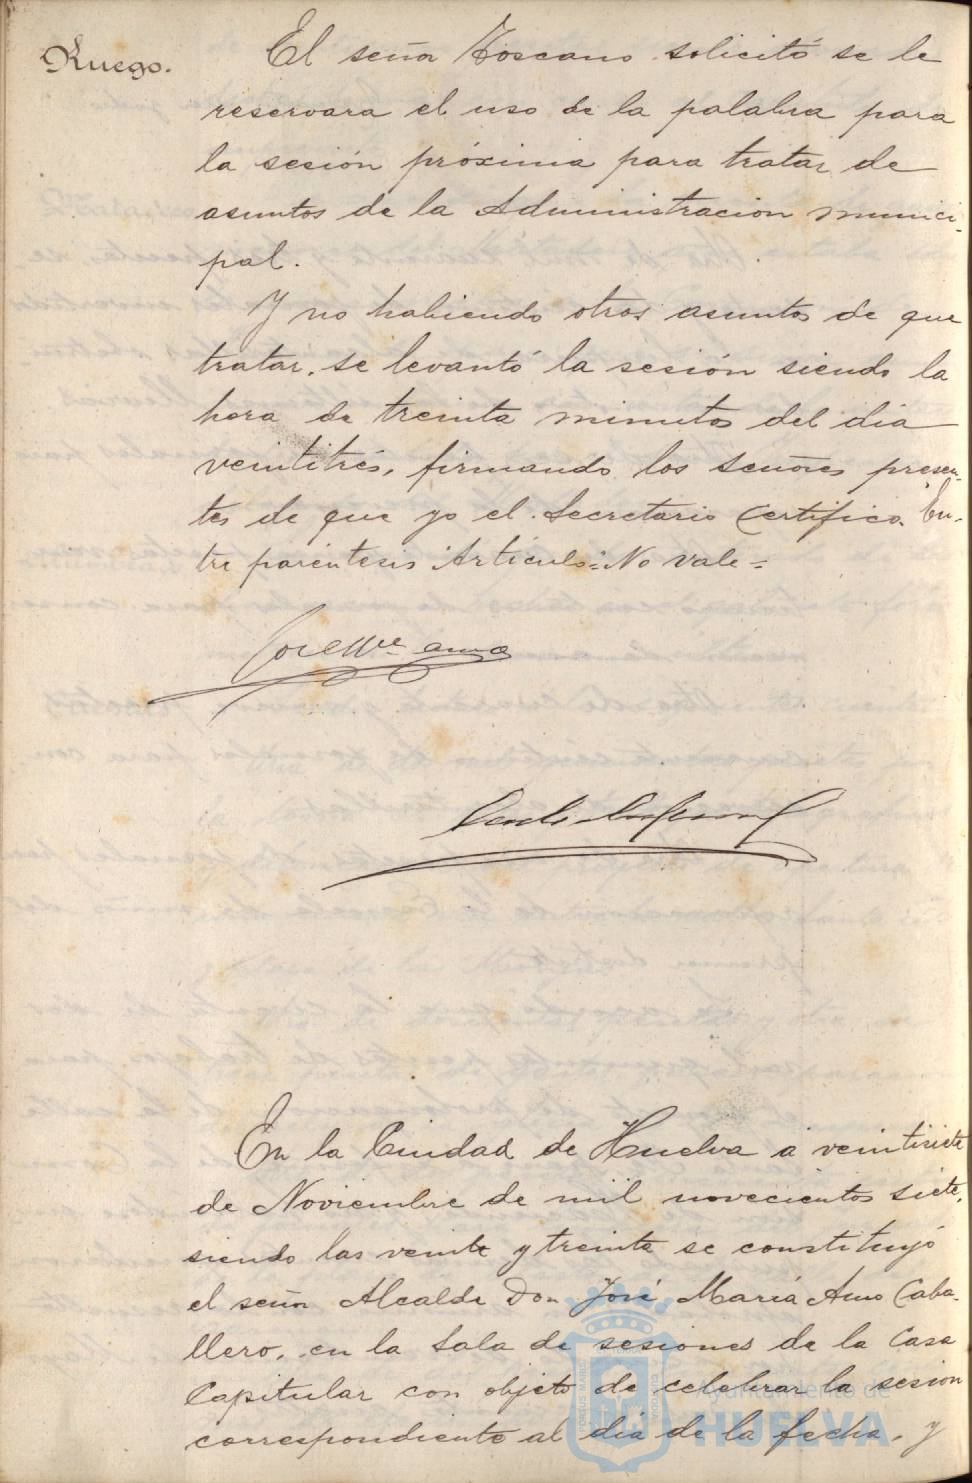 Ruego.
El señor Toscano solicitó se le
reservara el uso de la palabra para
la sesión próxima para tratar de
asuntos de la Administracion munici-
pal.
Y no habiendo otros asuntos de que
tratar, se levantó la sesión siendo la
hora de treinta minutos del dia
veintitrés, firmando los señores presen-
tes de que yo el Secretario Certifico. En-
tre parentesis Artículo = No vale =
José Mª Amo
En la Ciudad de Huelva á veintisiete
de Noviembre de mil novecientos siete,
siendo las veinte y treinta se constituyó
el señor Alcalde Don José María Amo Caba-
llero, en la Sala de sesiones de la Casa
Capitular con objeto de celebrar la sesion
correspondiente al dia de la fecha, y
Ayuntamiento de
HUELVA